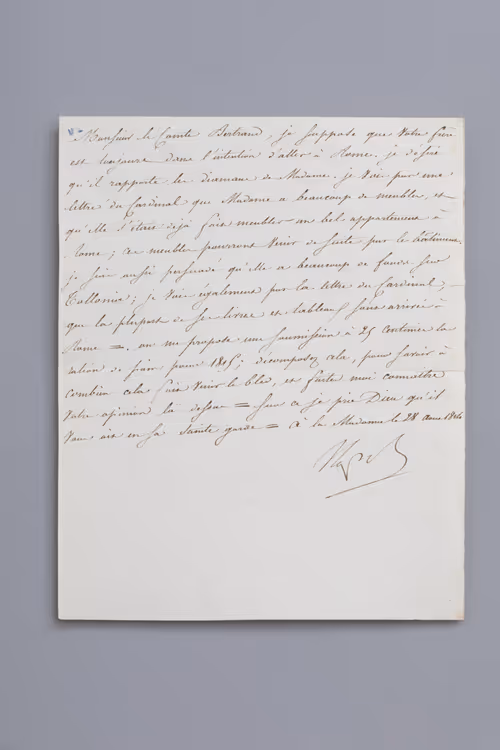 Monsieur le Comte Bertrand, je suppose que votre frère
est toujours dans l'intention d'aller à Rome. je désire
qu'il rapporte les diamans de Madame. je vois par une
lettre du Cardinal que Madame a beaucoup de meubles, et
qu'elle s'étoit déjà fait meubler un bel appartement à
Rome; ces meubles pourront venir de suite par le bâtiment.
je suis aussi persuadé qu'elle a beaucoup de fonds sur
; je vois également par la lettre du Cardinal,
que la plupart de ses livres et tableaux sont arrivés à
Rome =. on me propose une soumission à 25 centimes la
ration de pain pour 1815; décomposez cela, pour savoir à
combien cela fait venir le bled, et faites moi connaître
votre opinion là dessus = sur ce je prie Dieu qu'il
vous ait en sa sainte garde = à la Madonne le 28 aout 1814
Nap